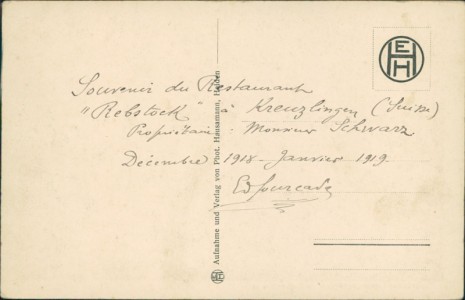 Souvenir du Restaurant
"Rebstock" à Kreuzlingen (Suisse)
Propriétaire - Monsieur Schwarz
Décembre 1918 - Janvier 1919
Ed
Aufnahme und Verlag von Phot. Hausamann, Heiden
EHH